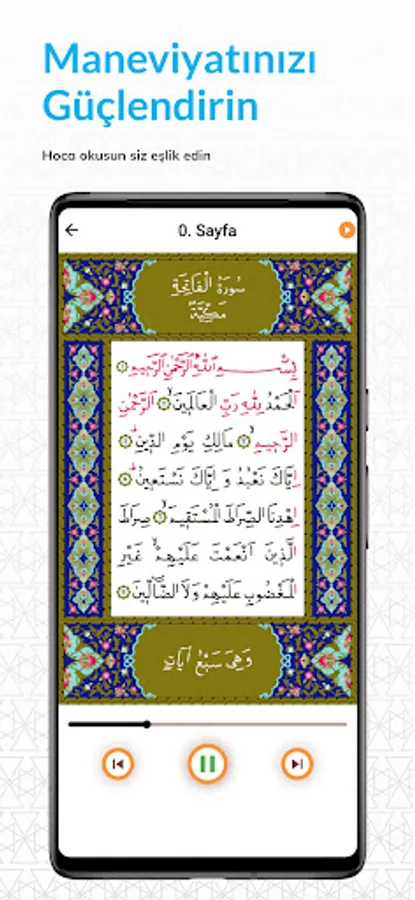 Maneviyatınızı
Güçlendirin
Hoca okusun siz eşlik edin
0. Sayfa
سُورَةُ الْفَاتِحَةِ
مَكِّيَّةٌ
بِسْمِ اللّٰهِ الرَّحْمٰنِ الرَّحِيمِ
اَلْحَمْدُ لِلّٰهِ رَبِّ الْعَالَمِينَ اَلرَّحْمٰنِ
الرَّحِيمِ مَالِكِ يَوْمِ الدِّينِ
اِيَّاكَ نَعْبُدُ وَ اِيَّاكَ نَسْتَعِينُ
اِهْدِنَا الصِّرَاطَ الْمُسْتَقِيمَ صِرَاطَ
الَّذِينَ اَنْعَمْتَ عَلَيْهِمْ غَيْرِ
الْمَغْضُوبِ عَلَيْهِمْ وَلَا الضَّالِّينَ
وَهِيَ سَبْعُ اٰيَاتٍ